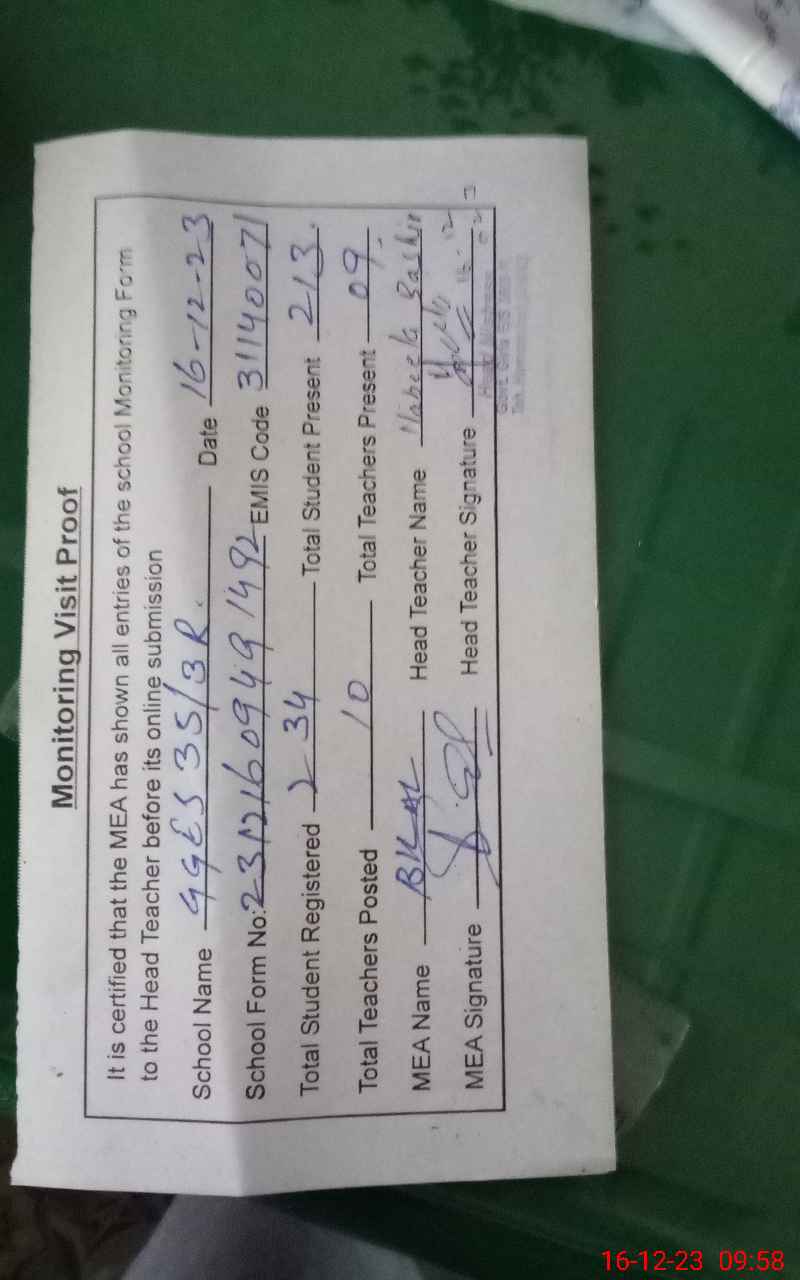 Monitoring Visit Proof
It is certified that the MEA has shown all entries of the school Monitoring Form
to the Head Teacher before its online submission
School Name GGES 35/3R. Date 16-12-23
School Form No: 231216094991492 EMIS Code 31140071
Total Student Registered 234 Total Student Present 213.
Total Teachers Posted 10 Total Teachers Present 09.
MEA Name Head Teacher Name Nabeela Bashir
MEA Signature Head Teacher Signature
16-12-23 09:58